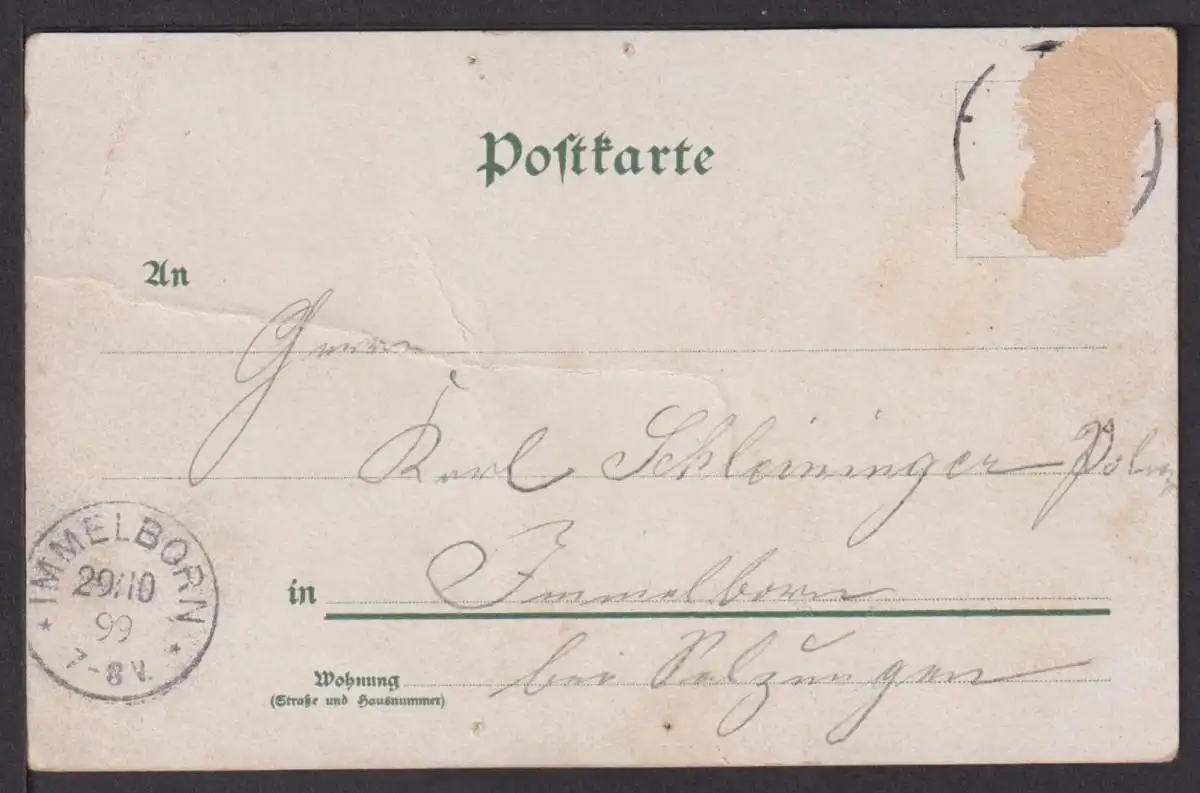 Postkarte
An
Herrn
Karl Schleininger
in Immelborn
Wohnung bei Salzungen
(Straße und Hausnummer)
IMMELBORN
29/10
99
7-8 V.